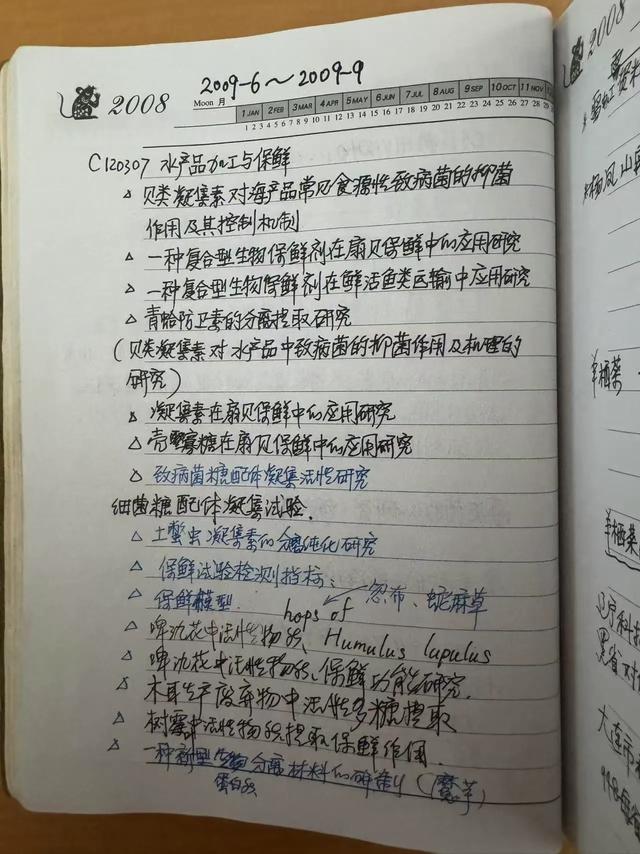 2009-6～2009-9
2008
Moon 月
1 JAN 2 FEB 3 MAR 4 APR 5 MAY 6 JUN 7 JUL 8 AUG 9 SEP 10 OCT 11 NOV
1 2 3 4 5 6 7 8 9 10 11 12 13 14 15 16 17 18 19 20 21 22 23 24 25 26 27 28 29
C120307 水产品加工与保鲜
△ 贝类凝集素对海产品常见食源性致病菌的抑菌
作用及其控制机制
△ 一种复合型生物保鲜剂在扇贝保鲜中的应用研究
△ 一种复合型生物保鲜剂在鲜活鱼类运输中应用研究
△ 青蛤防卫素的分离提取研究
(贝类凝集素对水产品中致病菌的抑菌作用及机理的
研究)
△ 凝集素在扇贝保鲜中的应用研究
△ 壳寡糖在扇贝保鲜中的应用研究
△ 致病菌糖配体凝集活性研究
细菌糖配体凝集试验.
△ 土鳖虫凝集素的分离纯化研究
△ 保鲜试验检测指标:
△ 保鲜模型.
hops of 忽布、蛇麻草
△ 啤酒花中活性物质、Humulus lupulus
△ 啤酒花中活性物质、保鲜功能研究.
△ 木耳生产废弃物中活性多糖提取
△ 树莓中活性物质提取保鲜作用.
△ 一种新型生物分离材料的研制 (魔芋)
蛋白质
2008
羊栖菜
羊栖菜
大连市